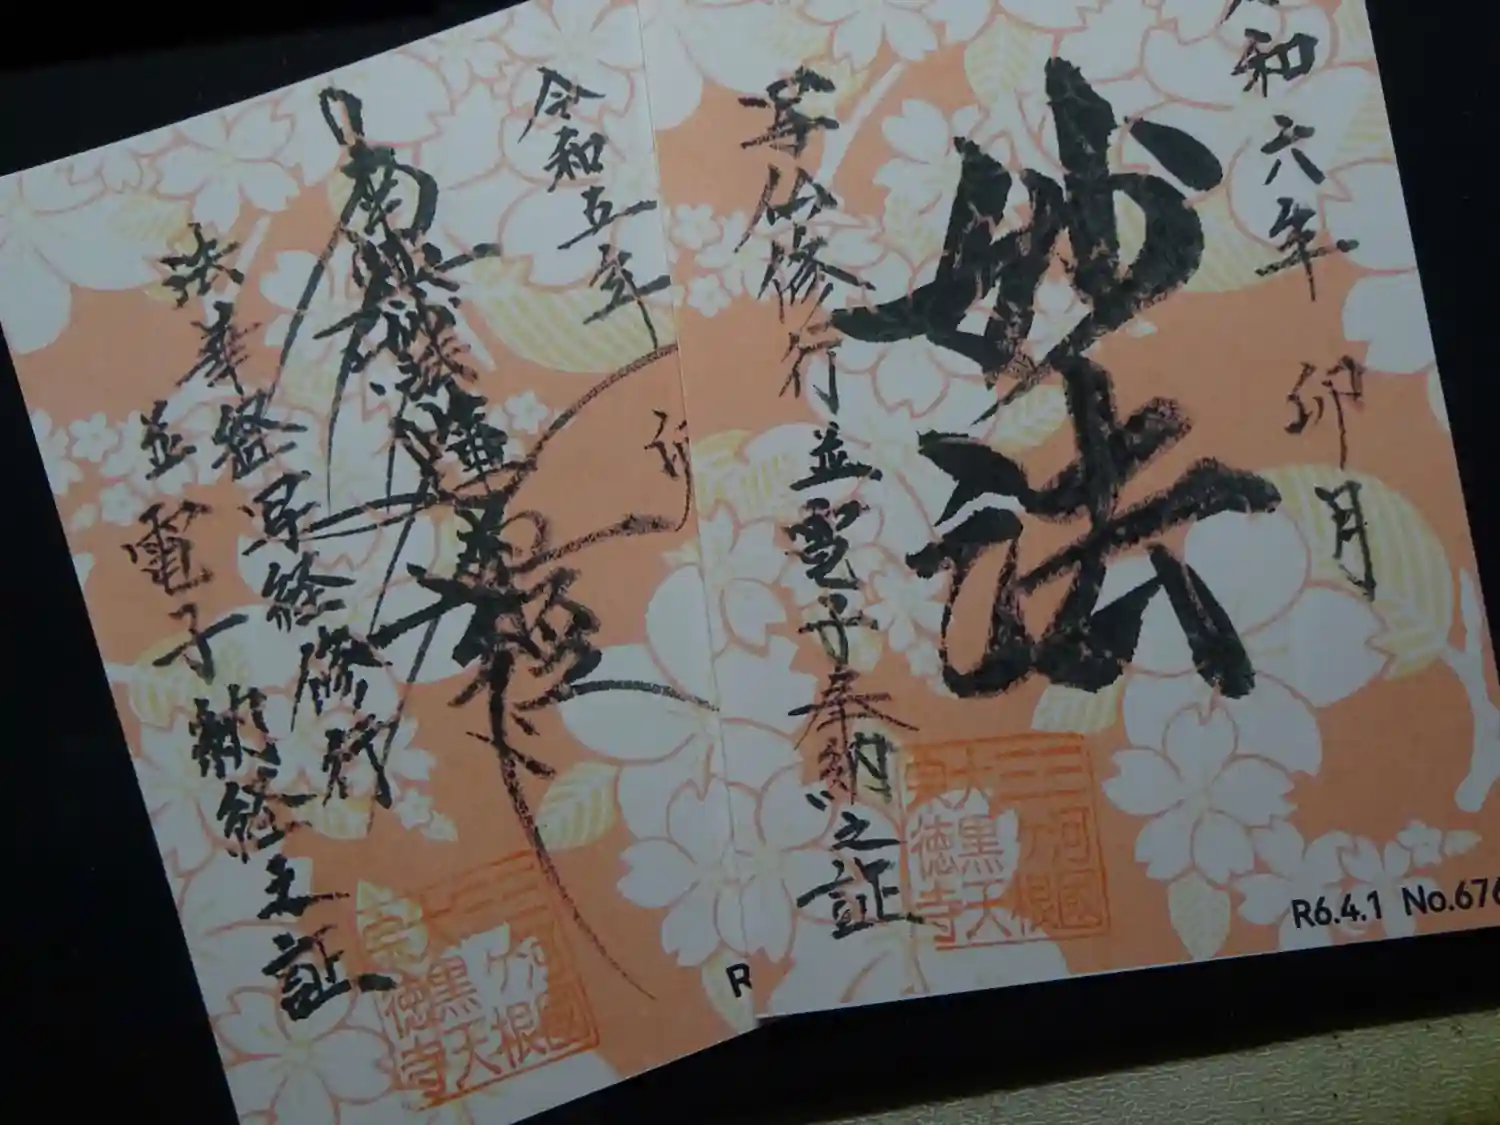 令和六年 卯月
妙法
写仏修行並電子奉納之証
三河國
ヶ根
大黒天
徳寺
R6.4.1 No.676
令和五年
南無妙法蓮華経
法華経写経修行
並電子納経之証
ヶ根
黒天
徳寺
R